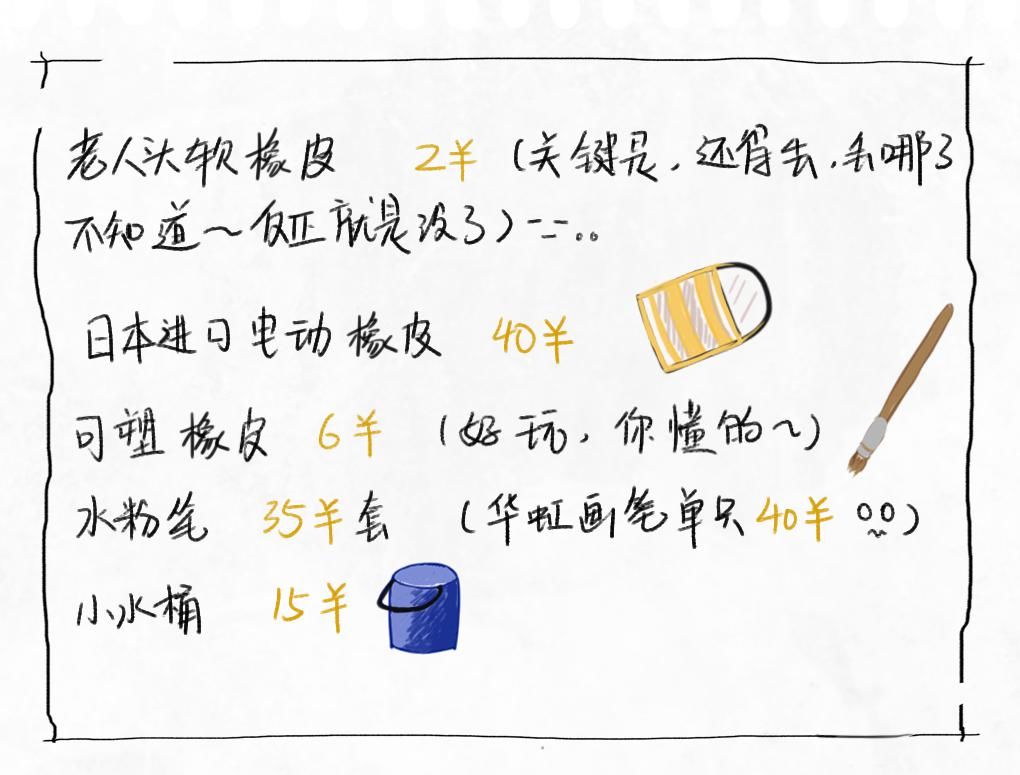 老人头软橡皮 2¥ (关键是.还得去.丢哪了
不知道~反正就是没了)--..
日本进口电动橡皮 40¥
可塑橡皮 6¥ (好玩,你懂的~)
水粉笔 35¥套 (华虹画笔单只40¥ )
小水桶 15¥